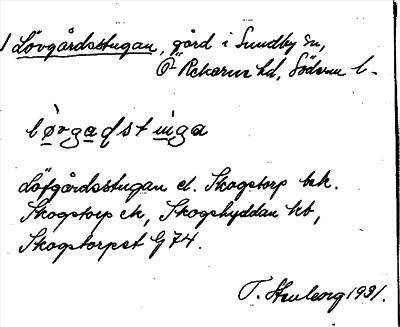 Lövgårdsstugan, gård i Sundby sn,
Ö-Rekarne hd, Söderm l-
Löfgårdsstugan el. Skogstorp bek.
Skogstorp ek, Skogshyddan kt,
Skogstorpet G 74.
1931.